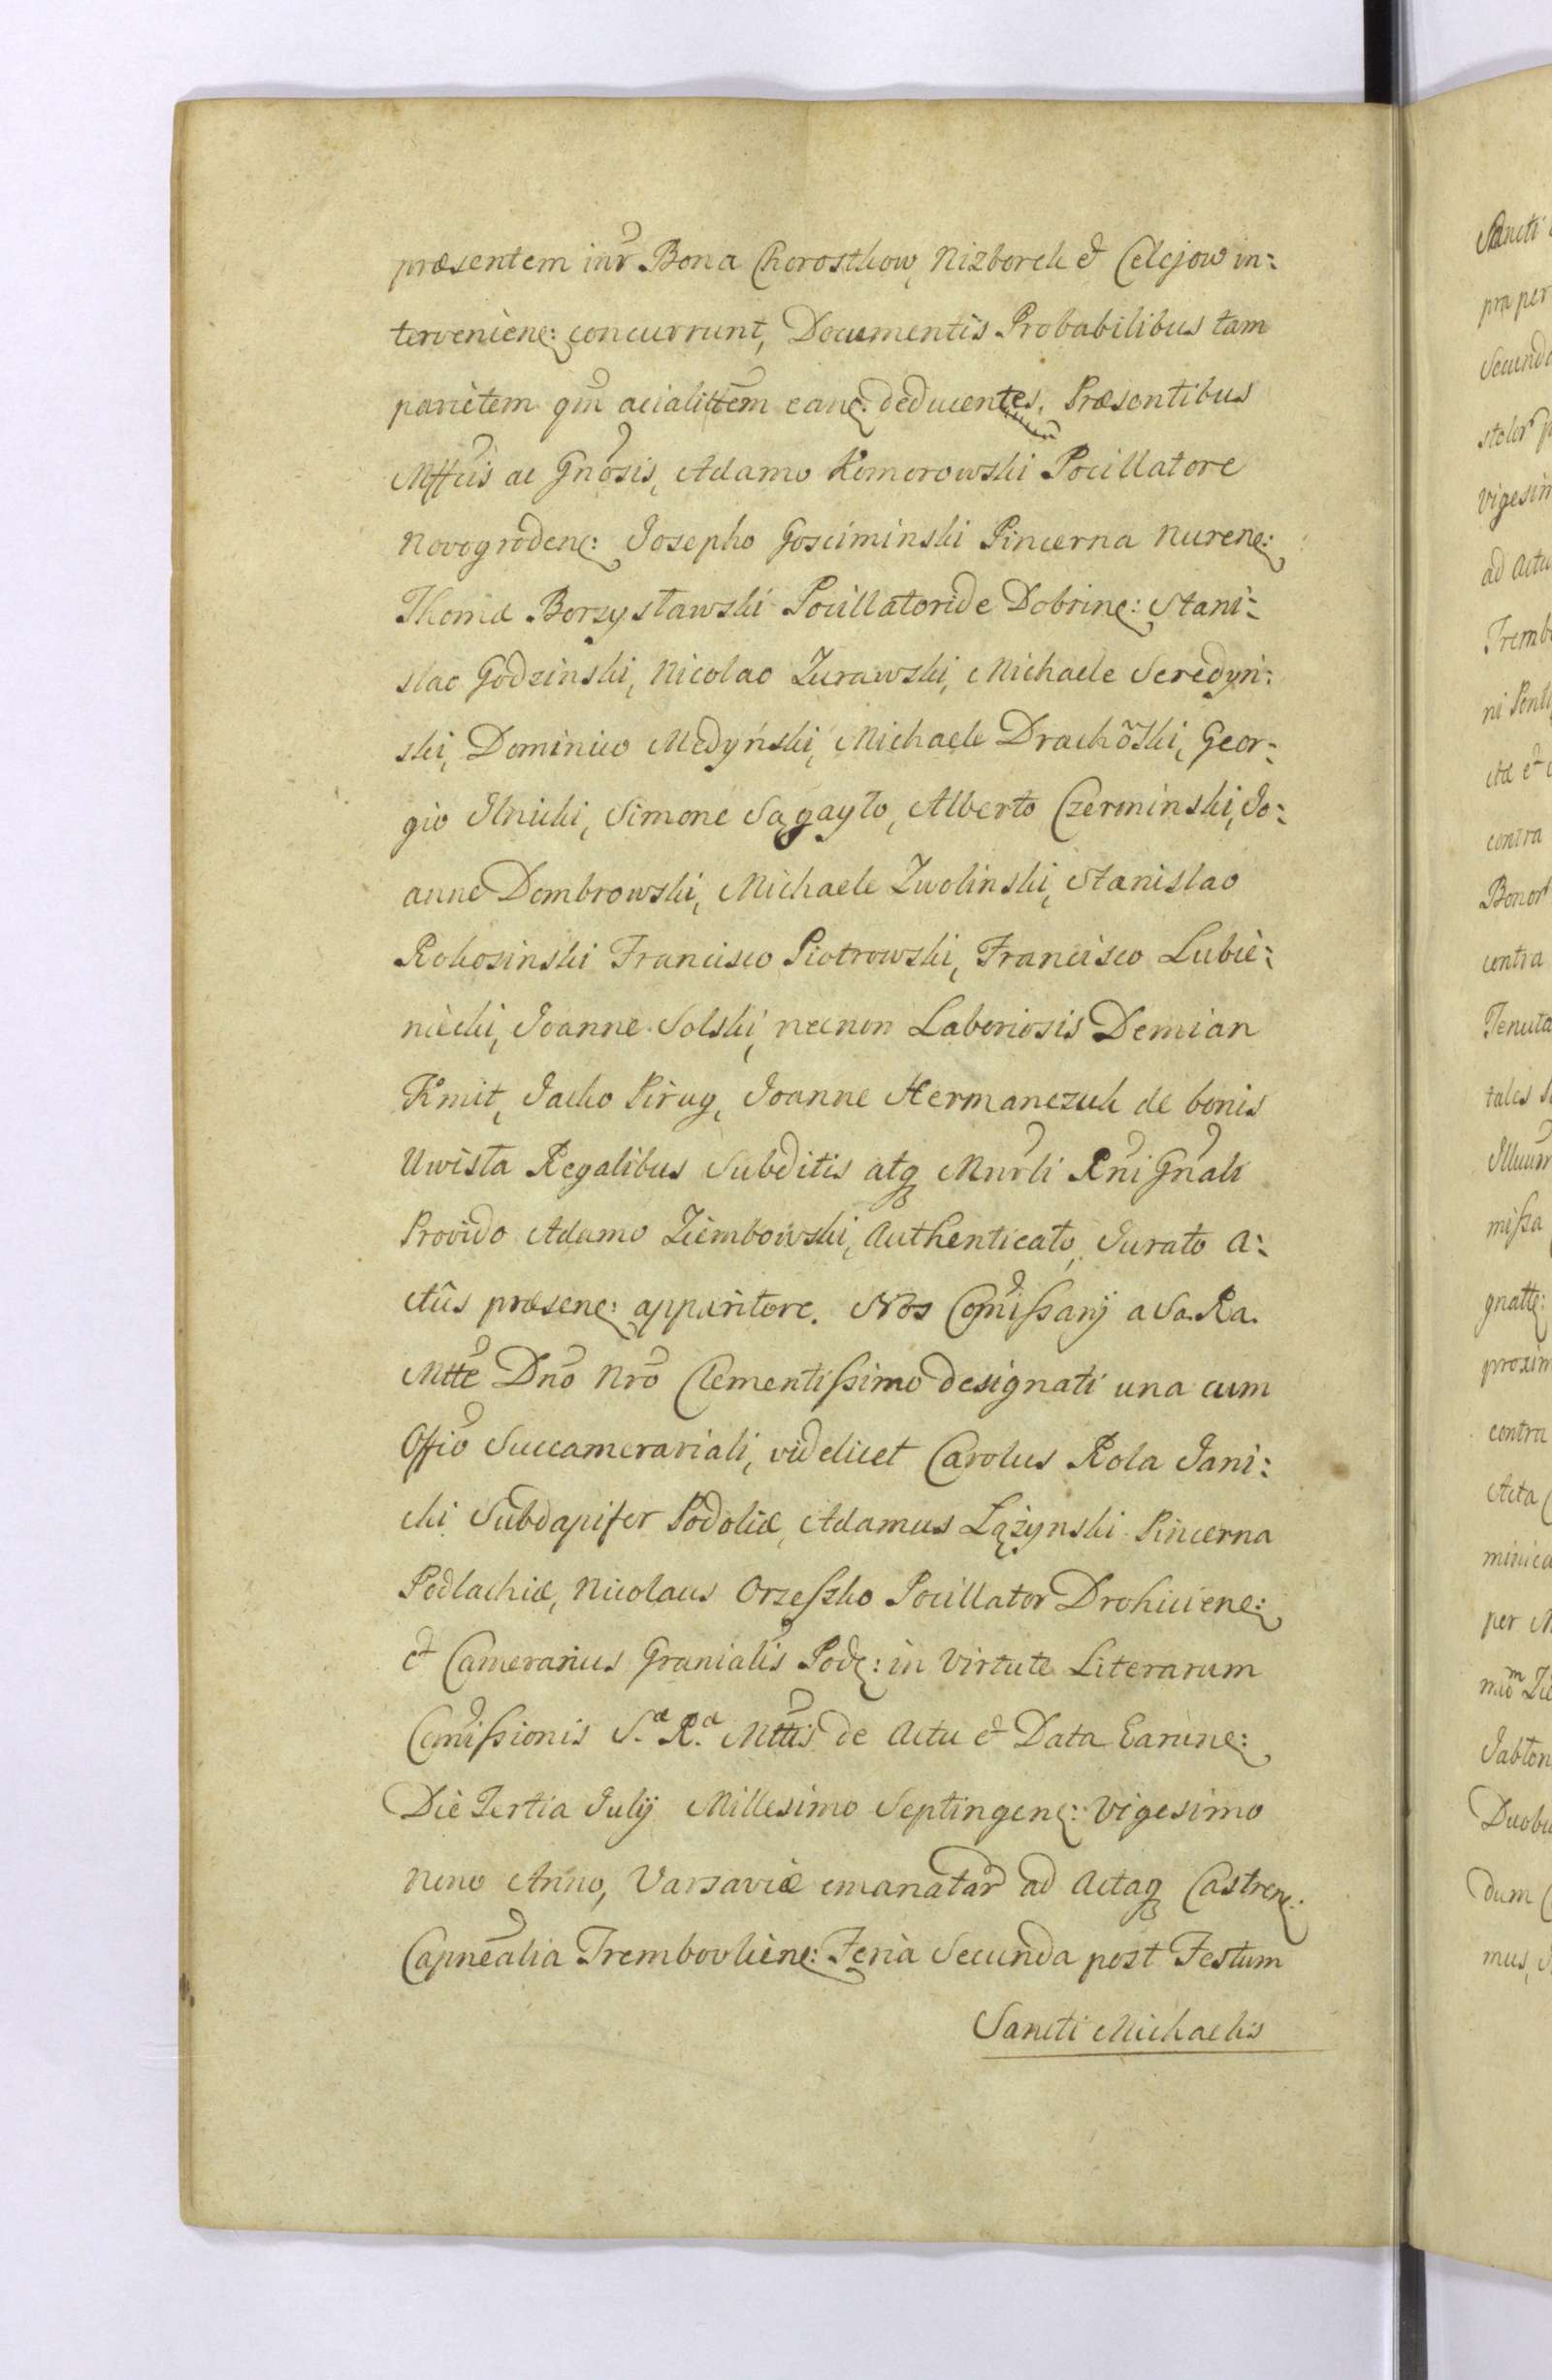 præsentem intr Bona Chorostkow, Nizborek & Celejow in:
terveniene: concurrunt, Documentis Probabilibus tam
parietem qm acialittem eane: deducentes, Præsentibus
Mffcis ac Gnosis, Adamo Komorowski Pocillatore
Novogrodene: Josepho Gosciminski Pincerna Nurene:
Thoma Borzysławski Pocillatoride Dobrine: Stani:
slao Godzinski, Nicolao Zurawski, Michaele Seredyn:
ski, Dominico Medyński, Michaele Drachõski, Geor:
gio Ilnicki, Simone Sągayło, Alberto Czerminski, Jo:
anne Dombrowski, Michaele Zwolinski, Stanislao
Rokosinski Francisco Piotrowski, Francisco Lubie:
niecki, Joanne Solski, necnon Laboriosis Demian
Kmit, Jacko Pirug, Joanne Hermanczuk de bonis
Uwisła Regalibus Subditis atq Mnrli Rni Gnali
Provido Adamo Ziembowski, Authenticato, Jurato A:
ctûs præsene: apparitore. Nos Comissarij a Sa. Ra.
Mtte Dno Nro Clementissimo designati una cum
Offio Succamerariali, videlicet Carolus Rola Jani:
cki Subdapifer Podoliæ, Adamus Lążynski Pincerna
Podlachiæ, Nicolaus Orzeszko Pocillator Drohiciene:
& Camerarius Granialis Pode: in Virtute Literarum
Comissionis S.æ R.æ Mttis de Actu & Data Earune:
Die Tertia Julij Millesimo Septingene: Vigesimo
Nono Anno, Varsaviæ emanatar ad Actaq Castrene:
Capnealia Trembovliene: Feria Secunda post Festum
Sancti Michaelis